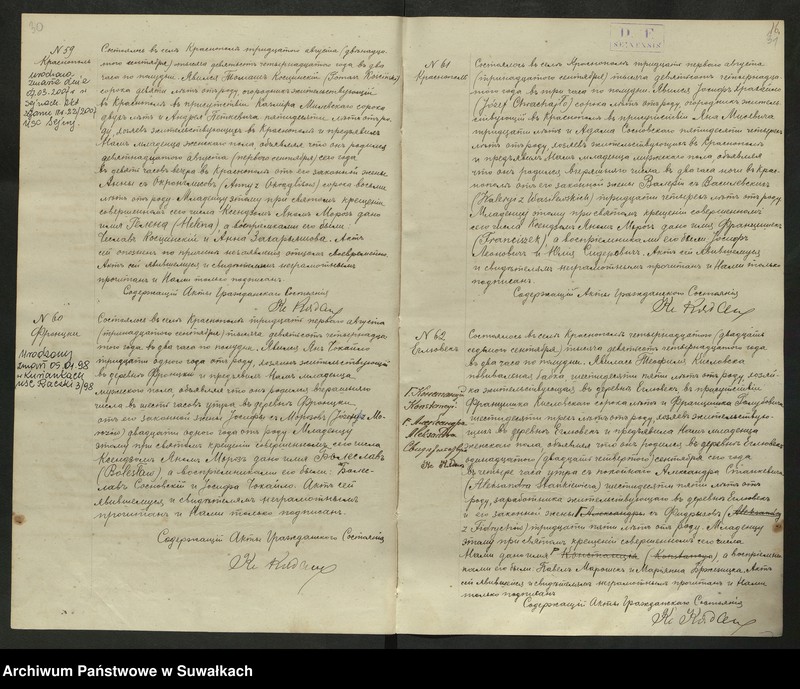 30
N 59
Краснополь
urodzona
zmarła dnia
02.03.2007 r. w
Sejnach Akt
zgonu nr 22/2007
USC Sejny.
Состоялось въ селѣ Краснополѣ тридцатаго августа (двѣнадца-
таго сентября) тысяча девятьсотъ четырнадцатаго года въ два
часа по полудни. Явился Томашъ Косцинскій
сорока девяти лѣтъ отъ роду, огородникъ жительствующій
въ Краснополѣ въ присутствіи Казимира Милевскаго сорока
двухъ лѣтъ и Андрея пятидесяти лѣтъ отъ ро-
ду, хозяевъ жительствующихъ въ Краснополѣ и предъявилъ
Намъ младенца женскаго пола объявляя что онъ родился
девятнадцатаго августа (перваго сентября) сего года
въ девять часовъ вечера въ Краснополѣ отъ его законной жены
Анны съ (Anny z) сорока восьми
лѣтъ отъ роду. Младенцу этому при святомъ крещеніи
совершенномъ сего числа Ксендзомъ Яномъ Морозъ дано
имя Гелена (Helena) а воспріемниками его были:
Чеславъ Косцинскій и Анна Захаржевшова. Актъ
сей опозненъ по причинѣ отцемъ.
Актъ сей явившемуся и свидѣтелямъ неграмотнымъ
прочитанъ и Нами только подписанъ.
Содержащій Акты Гражданскаго Состоянія
N 60
Фронцки
Urodzony
zmarł 05.01.98
w Kurjankach
USC Raczki 3/98
Состоялось въ селѣ Краснополѣ тридцать перваго августа
(тринадцатаго сентября) тысяча девятьсотъ четырнадца-
таго года въ два часа по полудни. Явился Янъ Чокайло
тридцати одного года отъ роду, хозяинъ жительствующій
въ деревнѣ Фронцки и предъявилъ Намъ младенца
мужескаго пола объявляя что онъ родился вчерашняго
числа въ шесть часовъ утра въ деревнѣ Фронцки
отъ его законной жены Іозефы съ Морозовъ (Józefy z Mo-
rozów) двадцати одного года отъ роду. Младенцу
этому при святомъ крещеніи совершенномъ сего числа
Ксендзомъ Яномъ Морозъ дано имя Болеславъ
(Bolesław) а воспріемниками его были: Болес-
лавъ Сосновскій и Іозефа Чокайло. Актъ сей
явившемуся и свидѣтелямъ неграмотнымъ
прочитанъ и Нами только подписанъ.
Содержащій Акты Гражданскаго Состоянія
N 61
Краснополь
Состоялось въ селѣ Краснополѣ тридцать перваго августа
(тринадцатаго сентября) тысяча девятьсотъ четырнадца-
таго года въ три часа по полудни. Явился Іосифъ
(Józef) сорока лѣтъ отъ роду, огородникъ житель-
ствующій въ Краснополѣ въ присутствіи Яна
тридцати лѣтъ и Адама Сосновскаго пятидесяти четырехъ
лѣтъ отъ роду, хозяевъ жительствующихъ въ Краснополѣ
и предъявилъ Намъ младенца мужескаго пола, объявляя
что онъ родился вчерашняго числа въ два часа ночи въ Крас-
нополѣ отъ его законной жены Валеріи съ Василевскихъ
(Waleryi z Wasilewskich) тридцати четырехъ лѣтъ отъ роду.
Младенцу этому при святомъ крещеніи совершенномъ
сего числа Ксендзомъ Яномъ Морозъ дано имя Францишекъ
(Franciszek) а воспріемниками его были Іосифъ
Леоновичъ и Юлія Сидоровичъ. Актъ сей явившемуся
и свидѣтелямъ неграмотнымъ прочитанъ и Нами только
подписанъ.
Содержащій Акты Гражданскаго Состоянія
N 62
Ежовекъ
Состоялось въ селѣ Краснополѣ четырнадцатаго (двадцать
седьмого сентября) тысяча девятьсотъ четырнадцатаго года
въ два часа по полудни. Явилась Теофиля Кисловска
повивальная бабка шестидесяти пяти лѣтъ отъ роду, хозяй-
ка жительствующая въ деревнѣ въ присутствіи
Францишка сорока лѣтъ и Францишка
шестидесяти трехъ лѣтъ отъ роду, хозяевъ жительствую-
щихъ въ деревнѣ и предъявила Намъ младенца
женскаго пола, объявляя что онъ родился въ деревнѣ
одиннадцатаго (двадцать четвертаго) сентября сего года
въ четыре часа утра съ покойнаго Александра Станкевича
(Aleksandra Stankiewicza) шестидесяти пяти лѣтъ отъ
роду, заработника жительствующаго въ деревнѣ
и его законной жены Александры съ
тридцати пяти лѣтъ отъ роду. Младенцу
этому при святомъ крещеніи совершенномъ сего числа
Нами дано имя Констанція (Konstancja), а воспріемни-
ками его были: Павелъ и Маріянна. Актъ
сей явившейся и свидѣтелямъ неграмотнымъ прочитанъ и Нами
только подписанъ.
Содержащій Акты Гражданскаго Состоянія
Archiwum Państwowe w Suwałkach